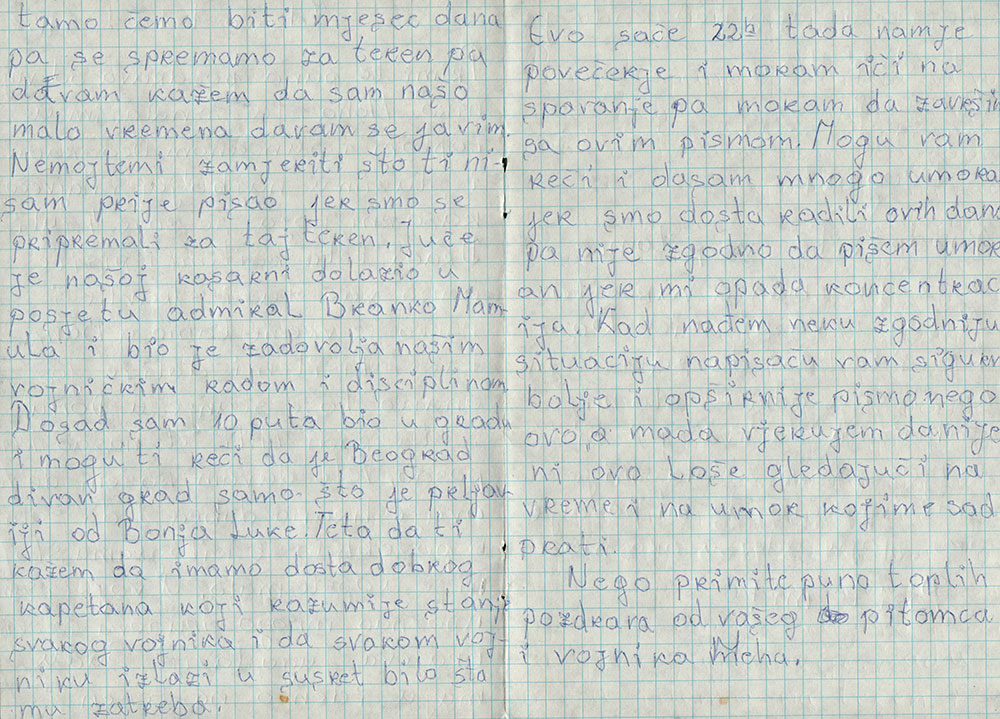 tamo ćemo biti mjesec dana
pa se spremamo za teren pa
da vam kažem da sam našo
malo vremena davam se javim.
Nemojtemi zamjeriti što ti ni-
sam prije pisao jer smo se
pripremali za taj teren. Juče
je našoj kasarni dolazio u
posjetu admiral Branko Mam-
ula i bio je zadovolja našim
vojničkim radom i disciplinom
Dosad sam 10 puta bio u gradu
i mogu ti reći da je Beograd
divan grad samo što je prljav
iji od Bonja Luke. Teta da ti
kažem da imamo dosta dobrog
kapetana koji razumije stanje
svakog vojnika i da svakom voj-
niku izlazi u susret bilo šta
mu zatreba.
Evo saće 22h tada namje
povečerje i moram ići na
spavanje pa moram da završim
sa ovim pismom. Mogu vam
reći i dasam mnogo umoran
jer smo dosta radili ovih dana
pa nije zgodno da pišem umor
an jer mi opada koncentrac
ija. Kad nađem neku zgodniju
situaciju napisaću vam sigurn
bolje i opširnije pismo nego
ovo, a mada vjerujem danije
ni ovo Loše gledajući na
vreme i na umor kojime sad
prati.
Nego primite puno toplih
pozdrava od vašeg pitomca
i vojnika Meha.